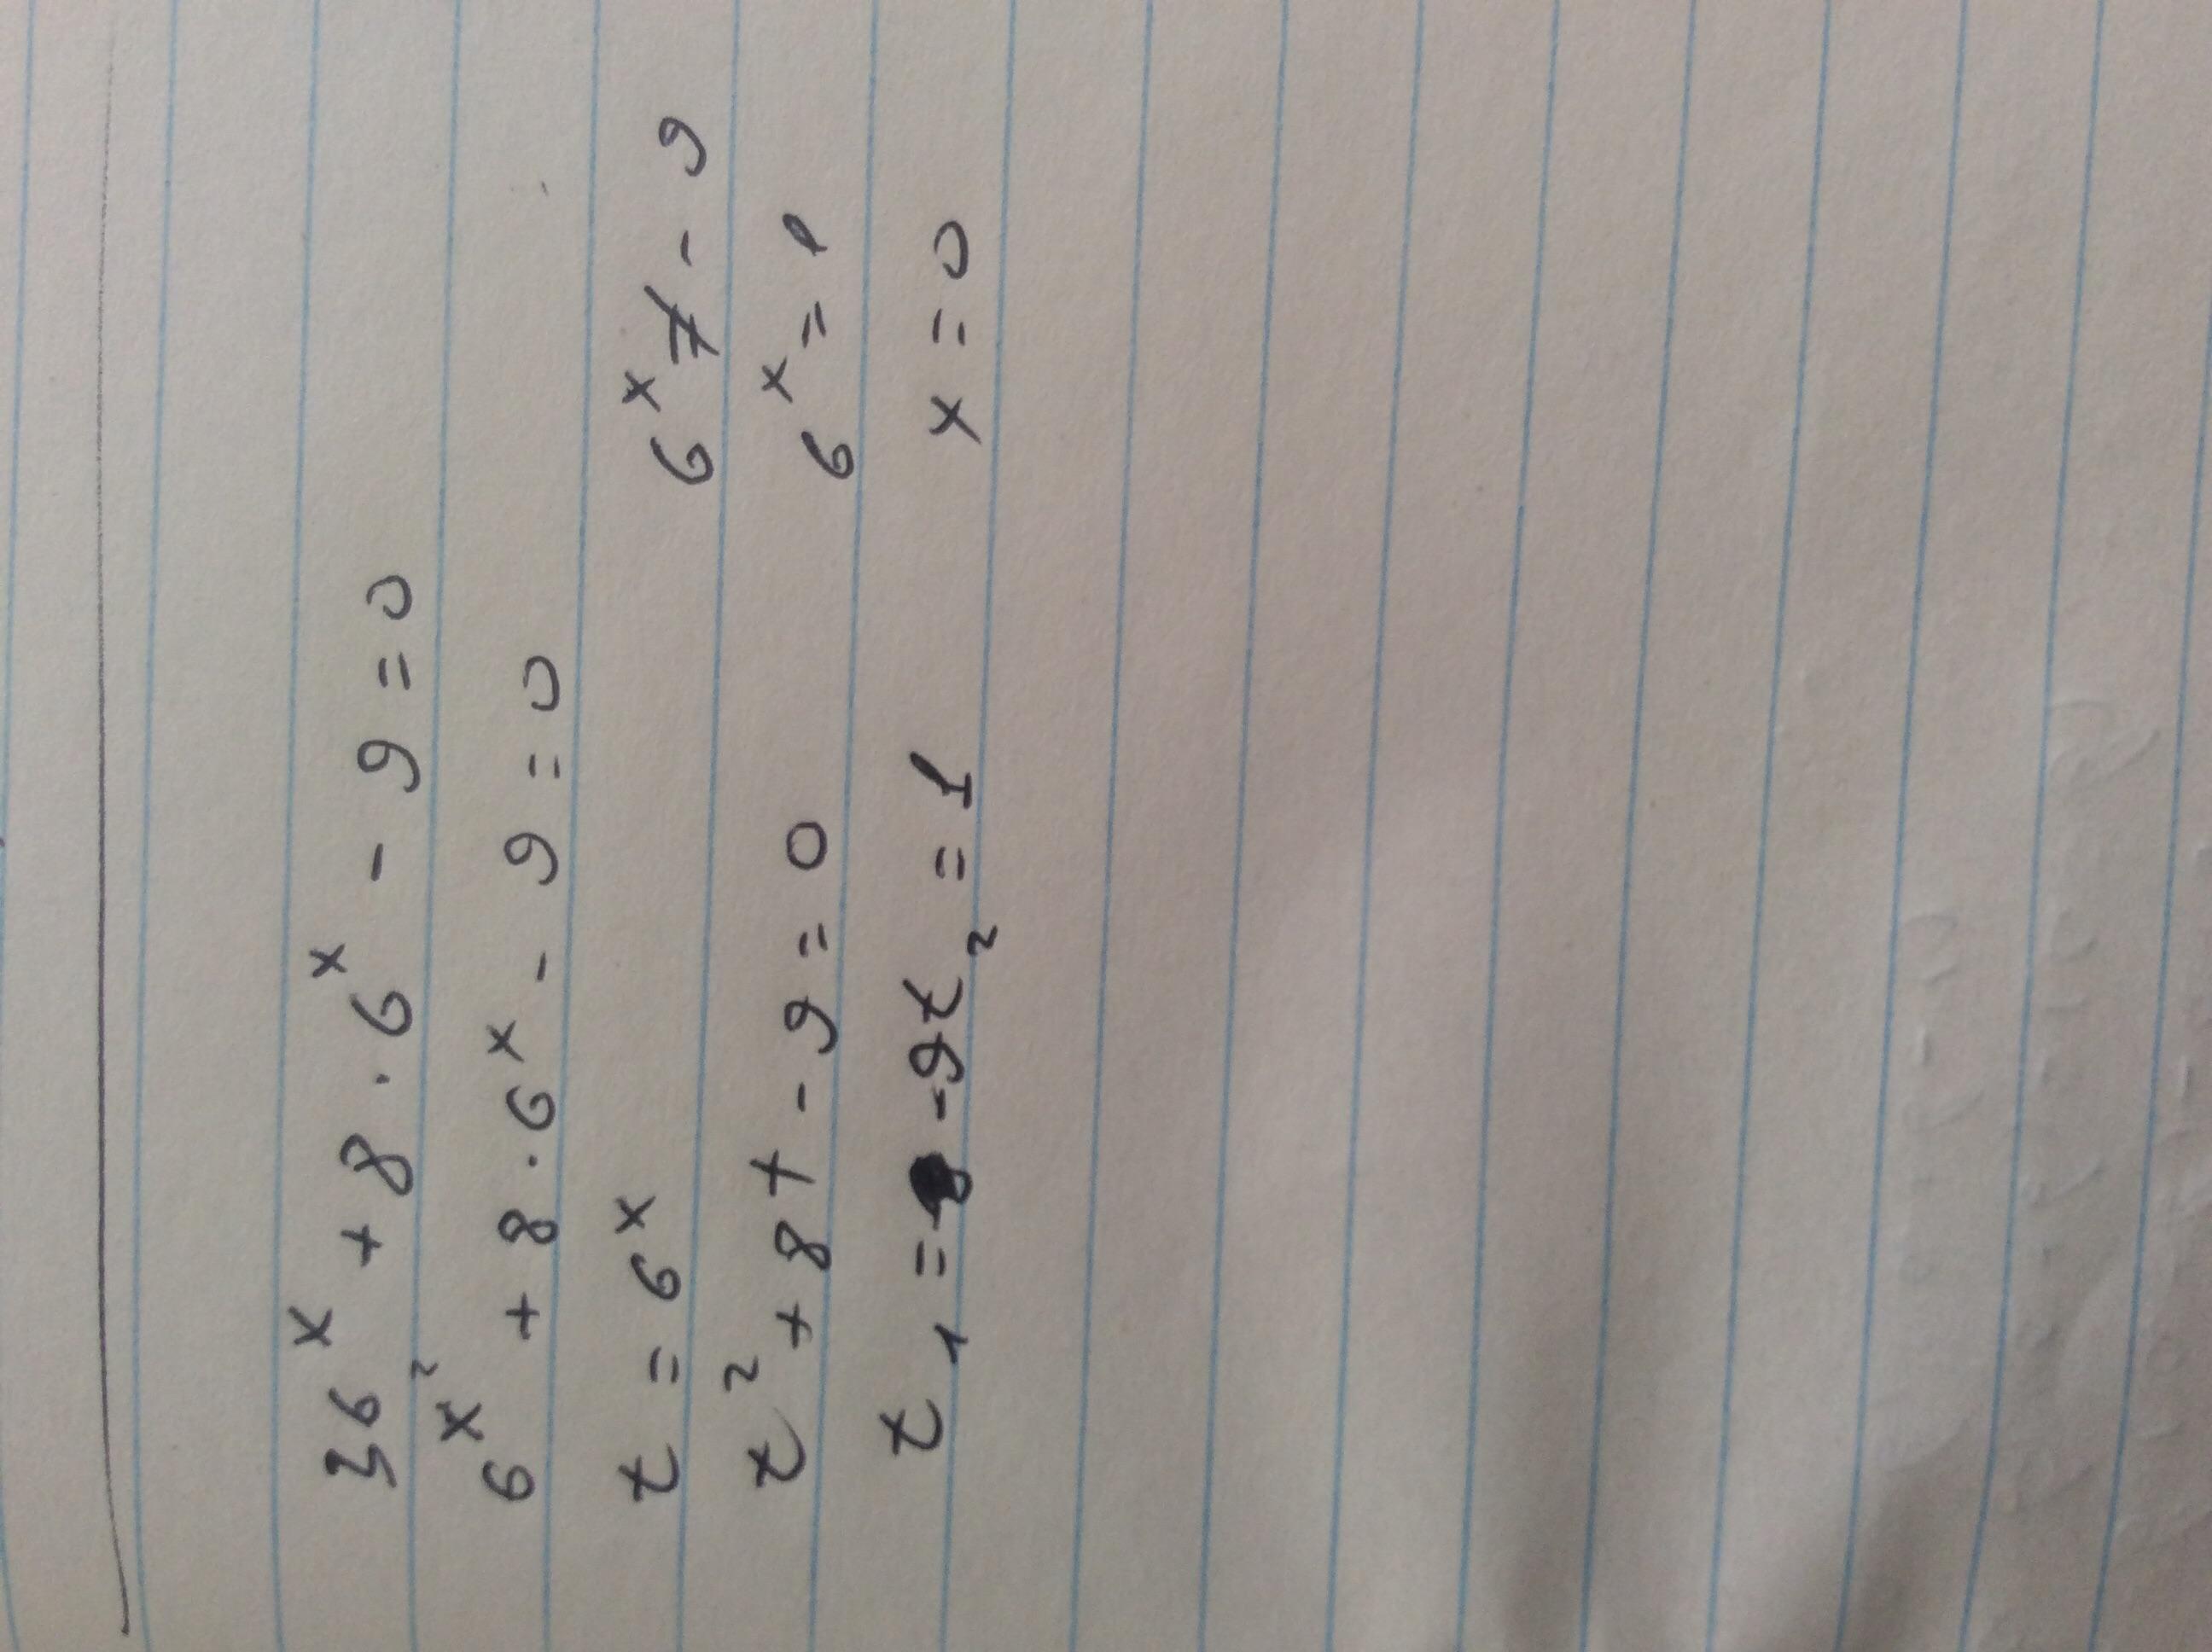 36^x + 8 · 6^x - 9 = 0
6^x^2 + 8 · 6^x - 9 = 0
t = 6^x
t^2 + 8t - 9 = 0
t_1 = -9 t_2 = 1
6^x ≠ -9
6^x = 1
x = 0